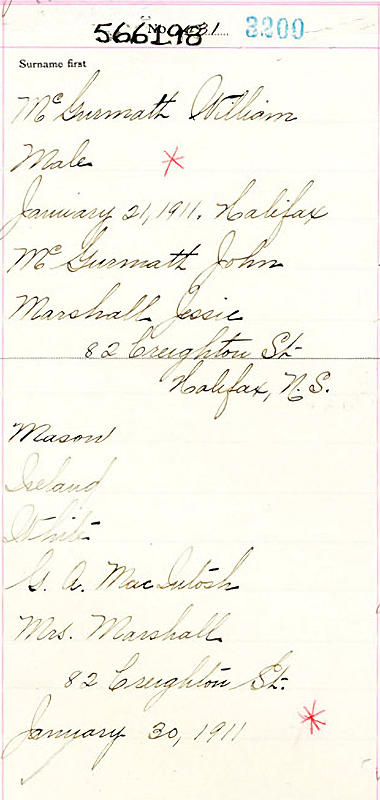 566198 3200
Surname first
McGurmath William
Male
January 21, 1911. Halifax
McGurmath John
Marshall Jessie
82 Creighton St.
Halifax, N.S.
Mason
Ireland
White
G. A. MacIntosh
Mrs. Marshall
82 Creighton St.
January 30, 1911